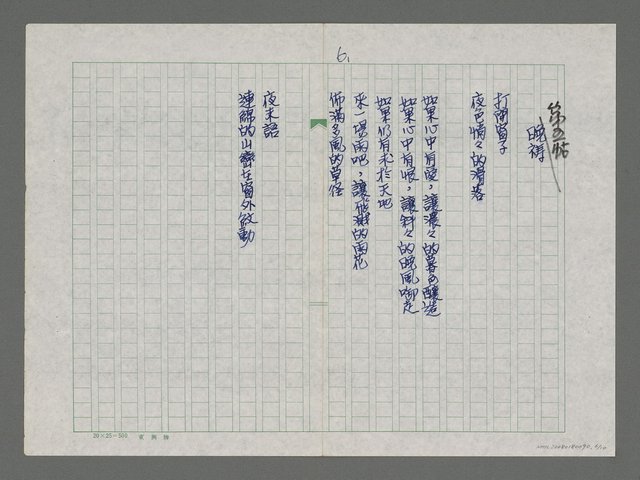 6.
第五帖
晚禱
打開窗子
夜色悄々的滑落
如果心中有愛，讓濃々的暮色釀造
如果心中有恨，讓斜々的晚風啣走
如果仍有求於天地
來一場雨吧，讓飛濺的雨花
佈滿多風的草徑
夜未語
連綿的山巒在窗外欲動
20×25=500